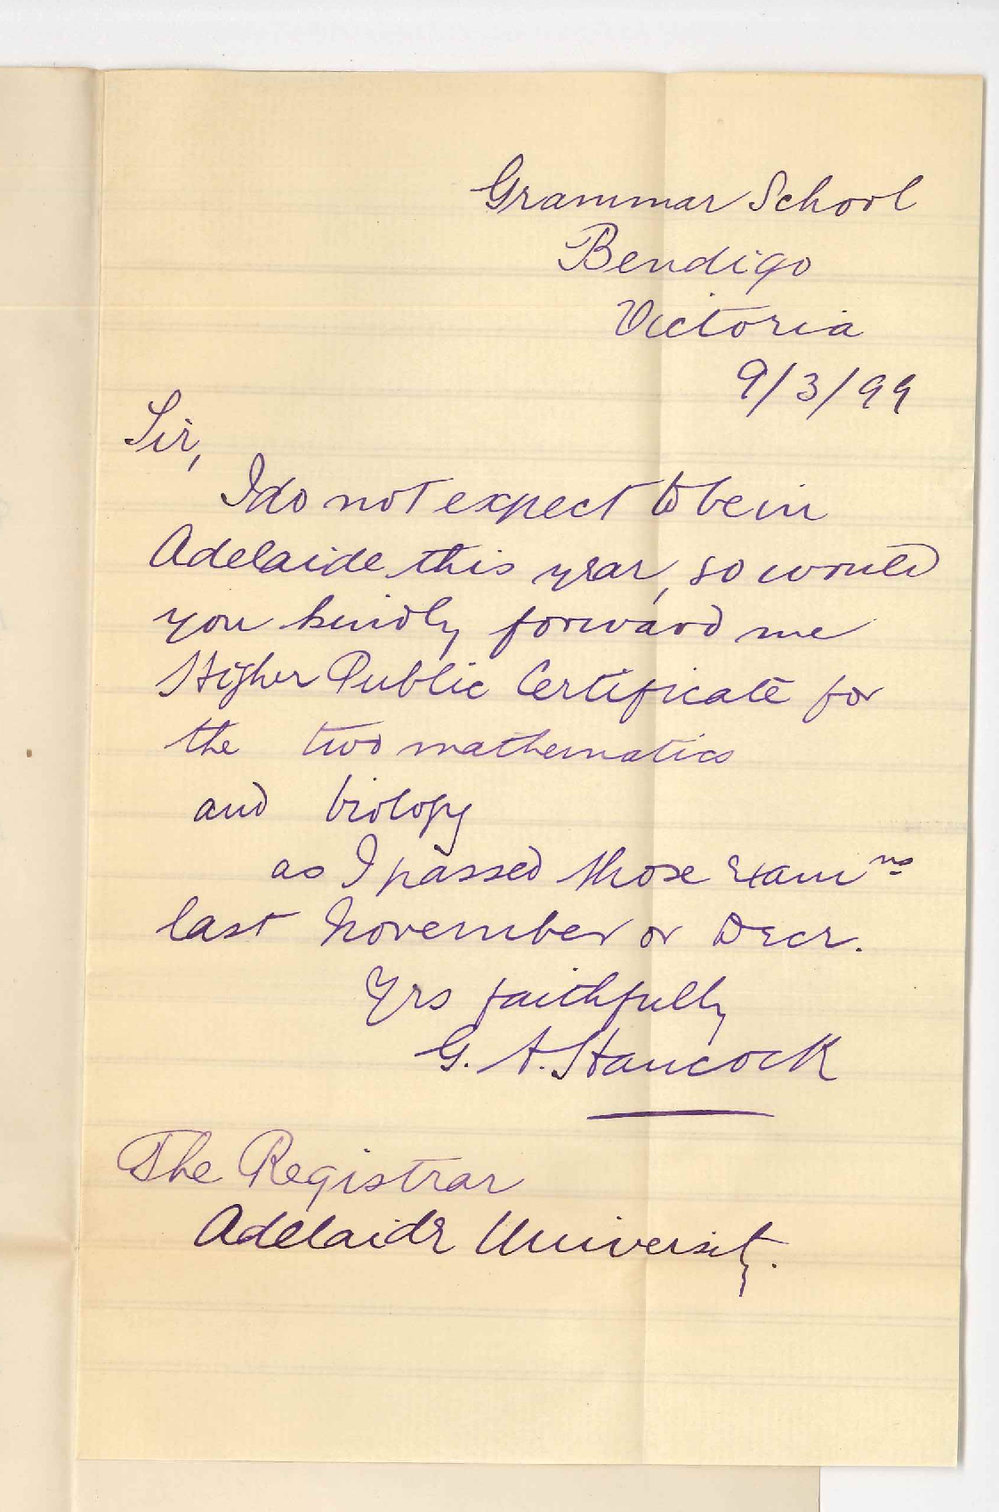 Grammar School
Bendigo
Victoria
9/3/99
Sir,
I do not expect to be in
Adelaide this year, so would
you kindly forward me
Higher Public Certificate for
the two mathematics
and biology
as I passed those Examns
last November or Decr.
Yrs faithfully
G. A. Hancock
The Registrar
Adelaide University.